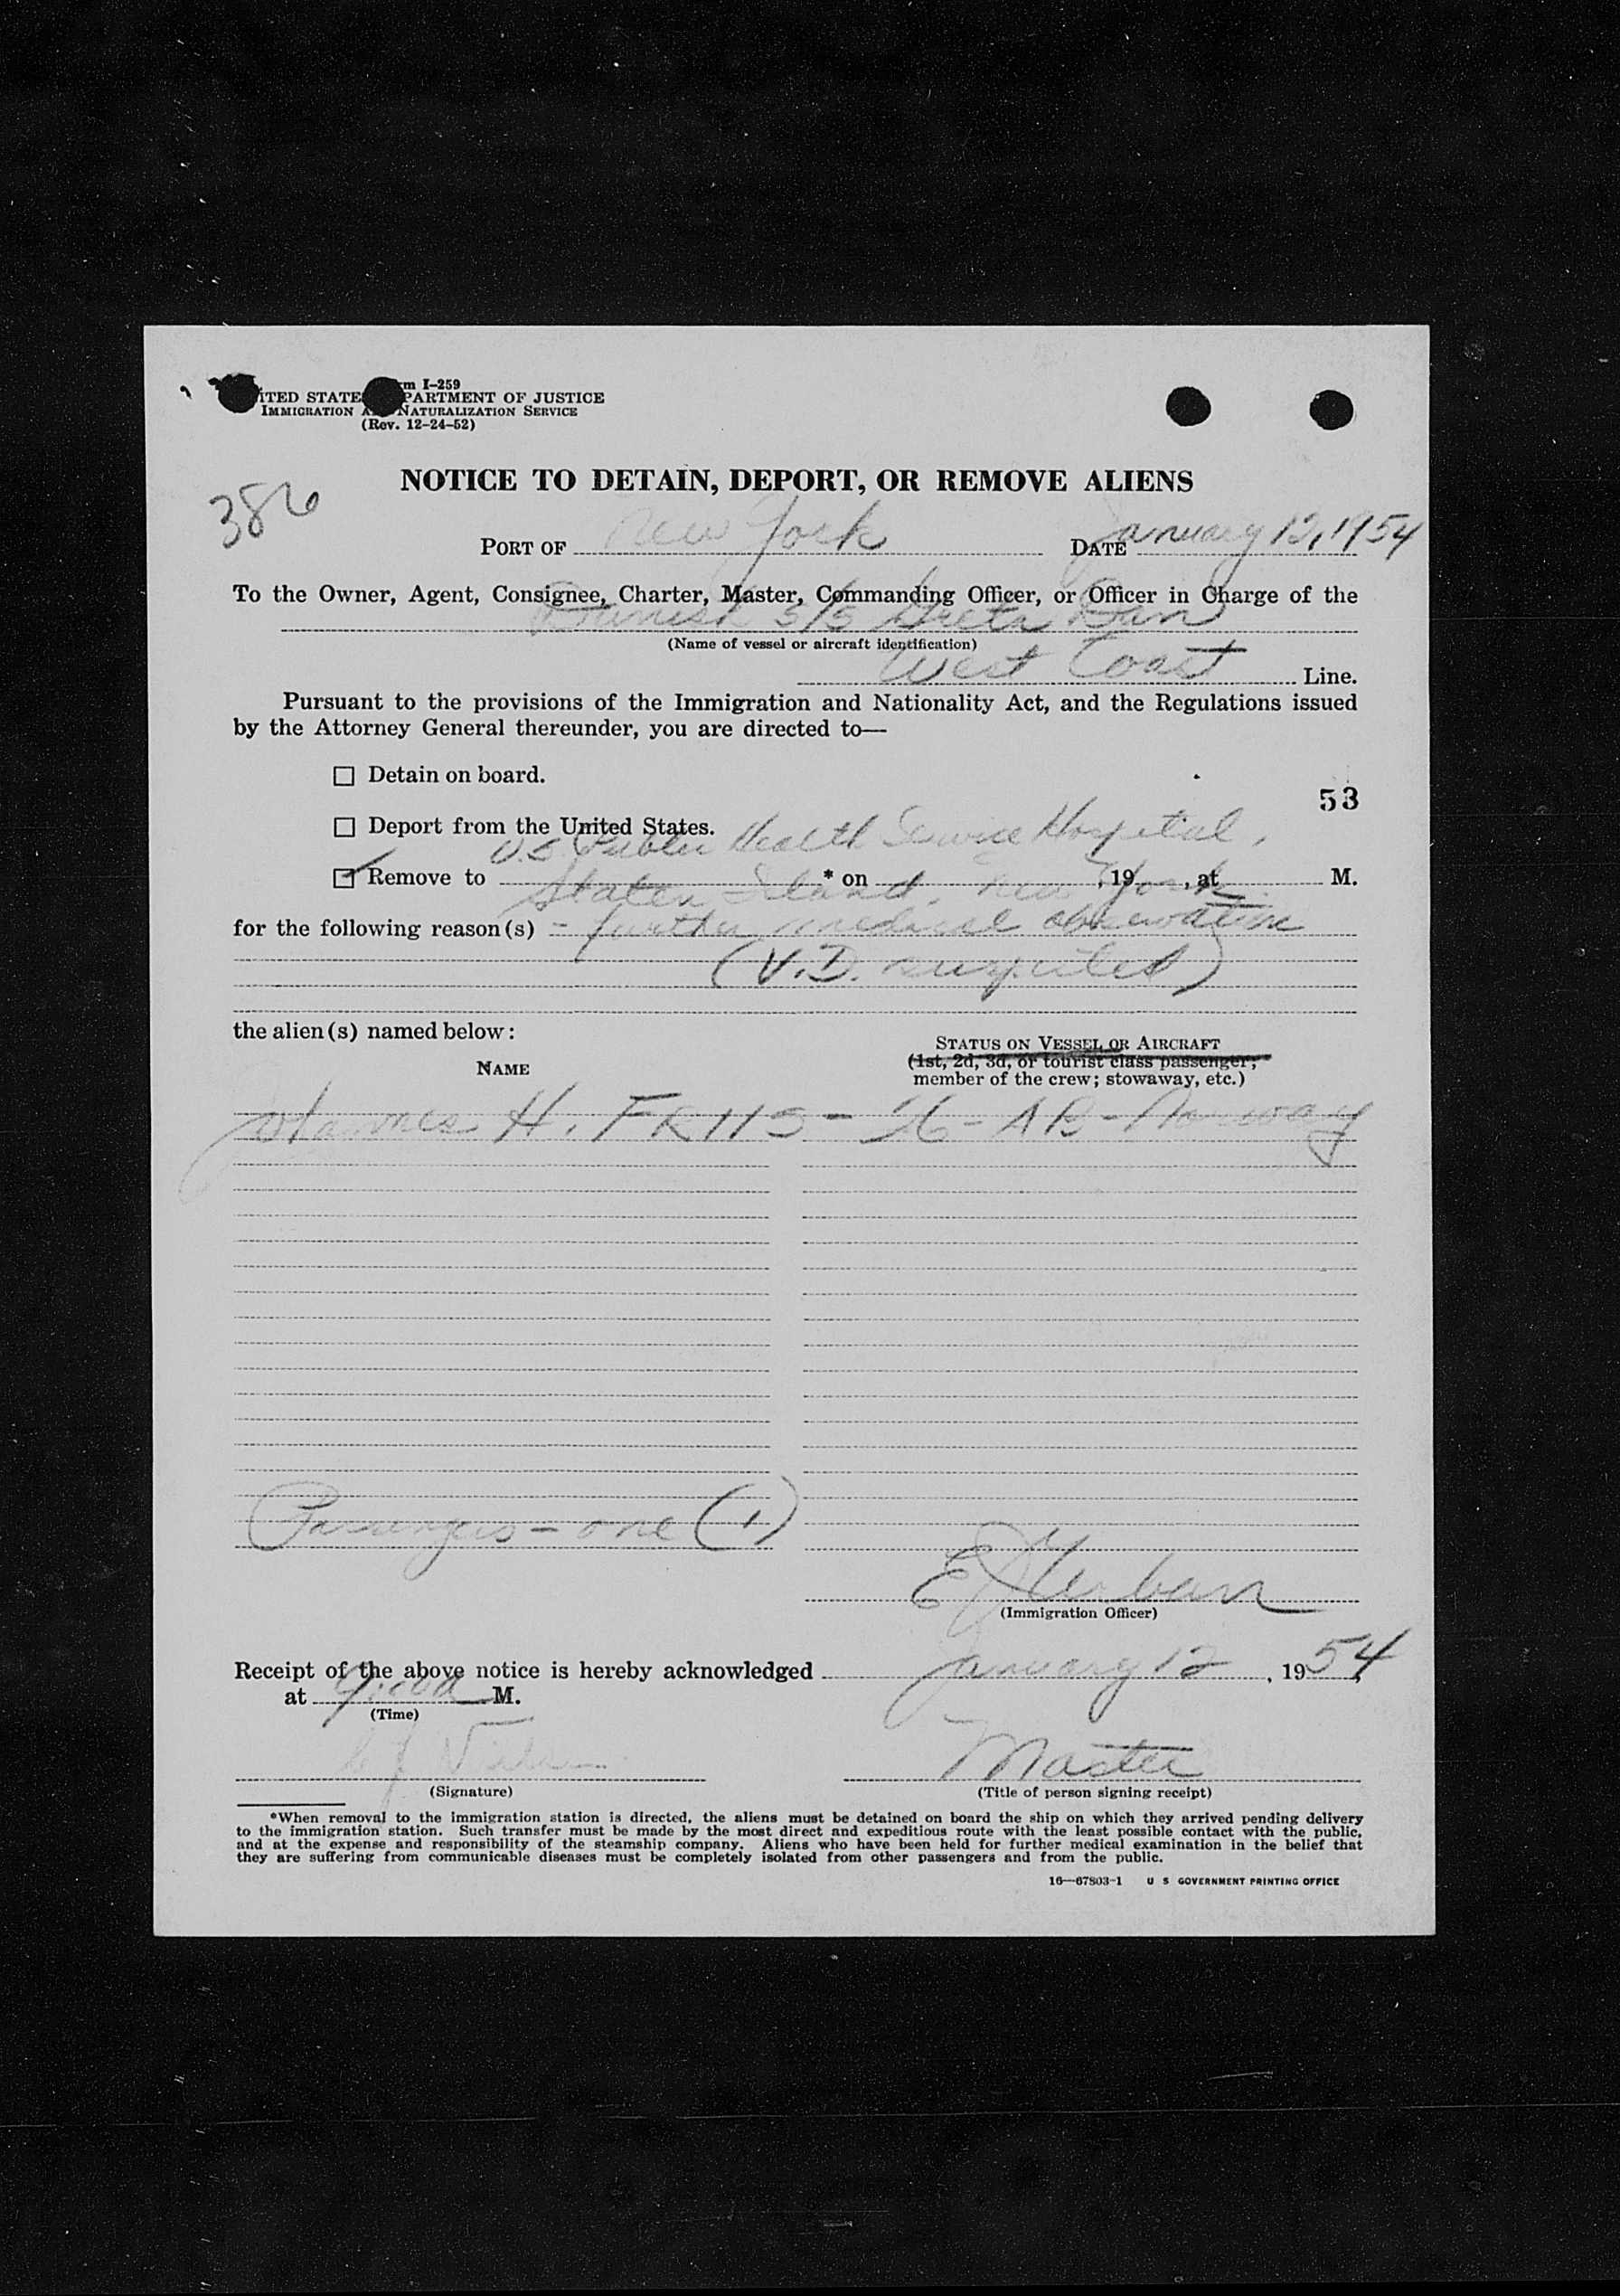 Form I-259
UNITED STATES DEPARTMENT OF JUSTICE
IMMIGRATION AND NATURALIZATION SERVICE
(Rev. 12-24-52)
NOTICE TO DETAIN, DEPORT, OR REMOVE ALIENS
386
PORT OF New York DATE January 12, 1954
To the Owner, Agent, Consignee, Charter, Master, Commanding Officer, or Officer in Charge of the
Danish S/S Greta Dan
(Name of vessel or aircraft identification)
West Coast Line.
Pursuant to the provisions of the Immigration and Nationality Act, and the Regulations issued
by the Attorney General thereunder, you are directed to—
☐ Detain on board.
53
☐ Deport from the United States.
U.S. Public Health Service Hospital,
☑ Remove to * on , 19 , at M.
Staten Island, New York
for the following reason(s) - further medical observation
(V.D. suspected)
the alien(s) named below:
NAME
STATUS ON VESSEL OR AIRCRAFT
(1st, 2d, 3d, or tourist class passenger;
member of the crew; stowaway, etc.)
H. FRIIS - 26 - AB - Norway
Passengers - one (1)
E J Urban
(Immigration Officer)
Receipt of the above notice is hereby acknowledged January 12, 1954,
at M.
(Time)
Master
(Signature)
(Title of person signing receipt)
*When removal to the immigration station is directed, the aliens must be detained on board the ship on which they arrived pending delivery
to the immigration station. Such transfer must be made by the most direct and expeditious route with the least possible contact with the public,
and at the expense and responsibility of the steamship company. Aliens who have been held for further medical examination in the belief that
they are suffering from communicable diseases must be completely isolated from other passengers and from the public.
16—67803-1 U S GOVERNMENT PRINTING OFFICE